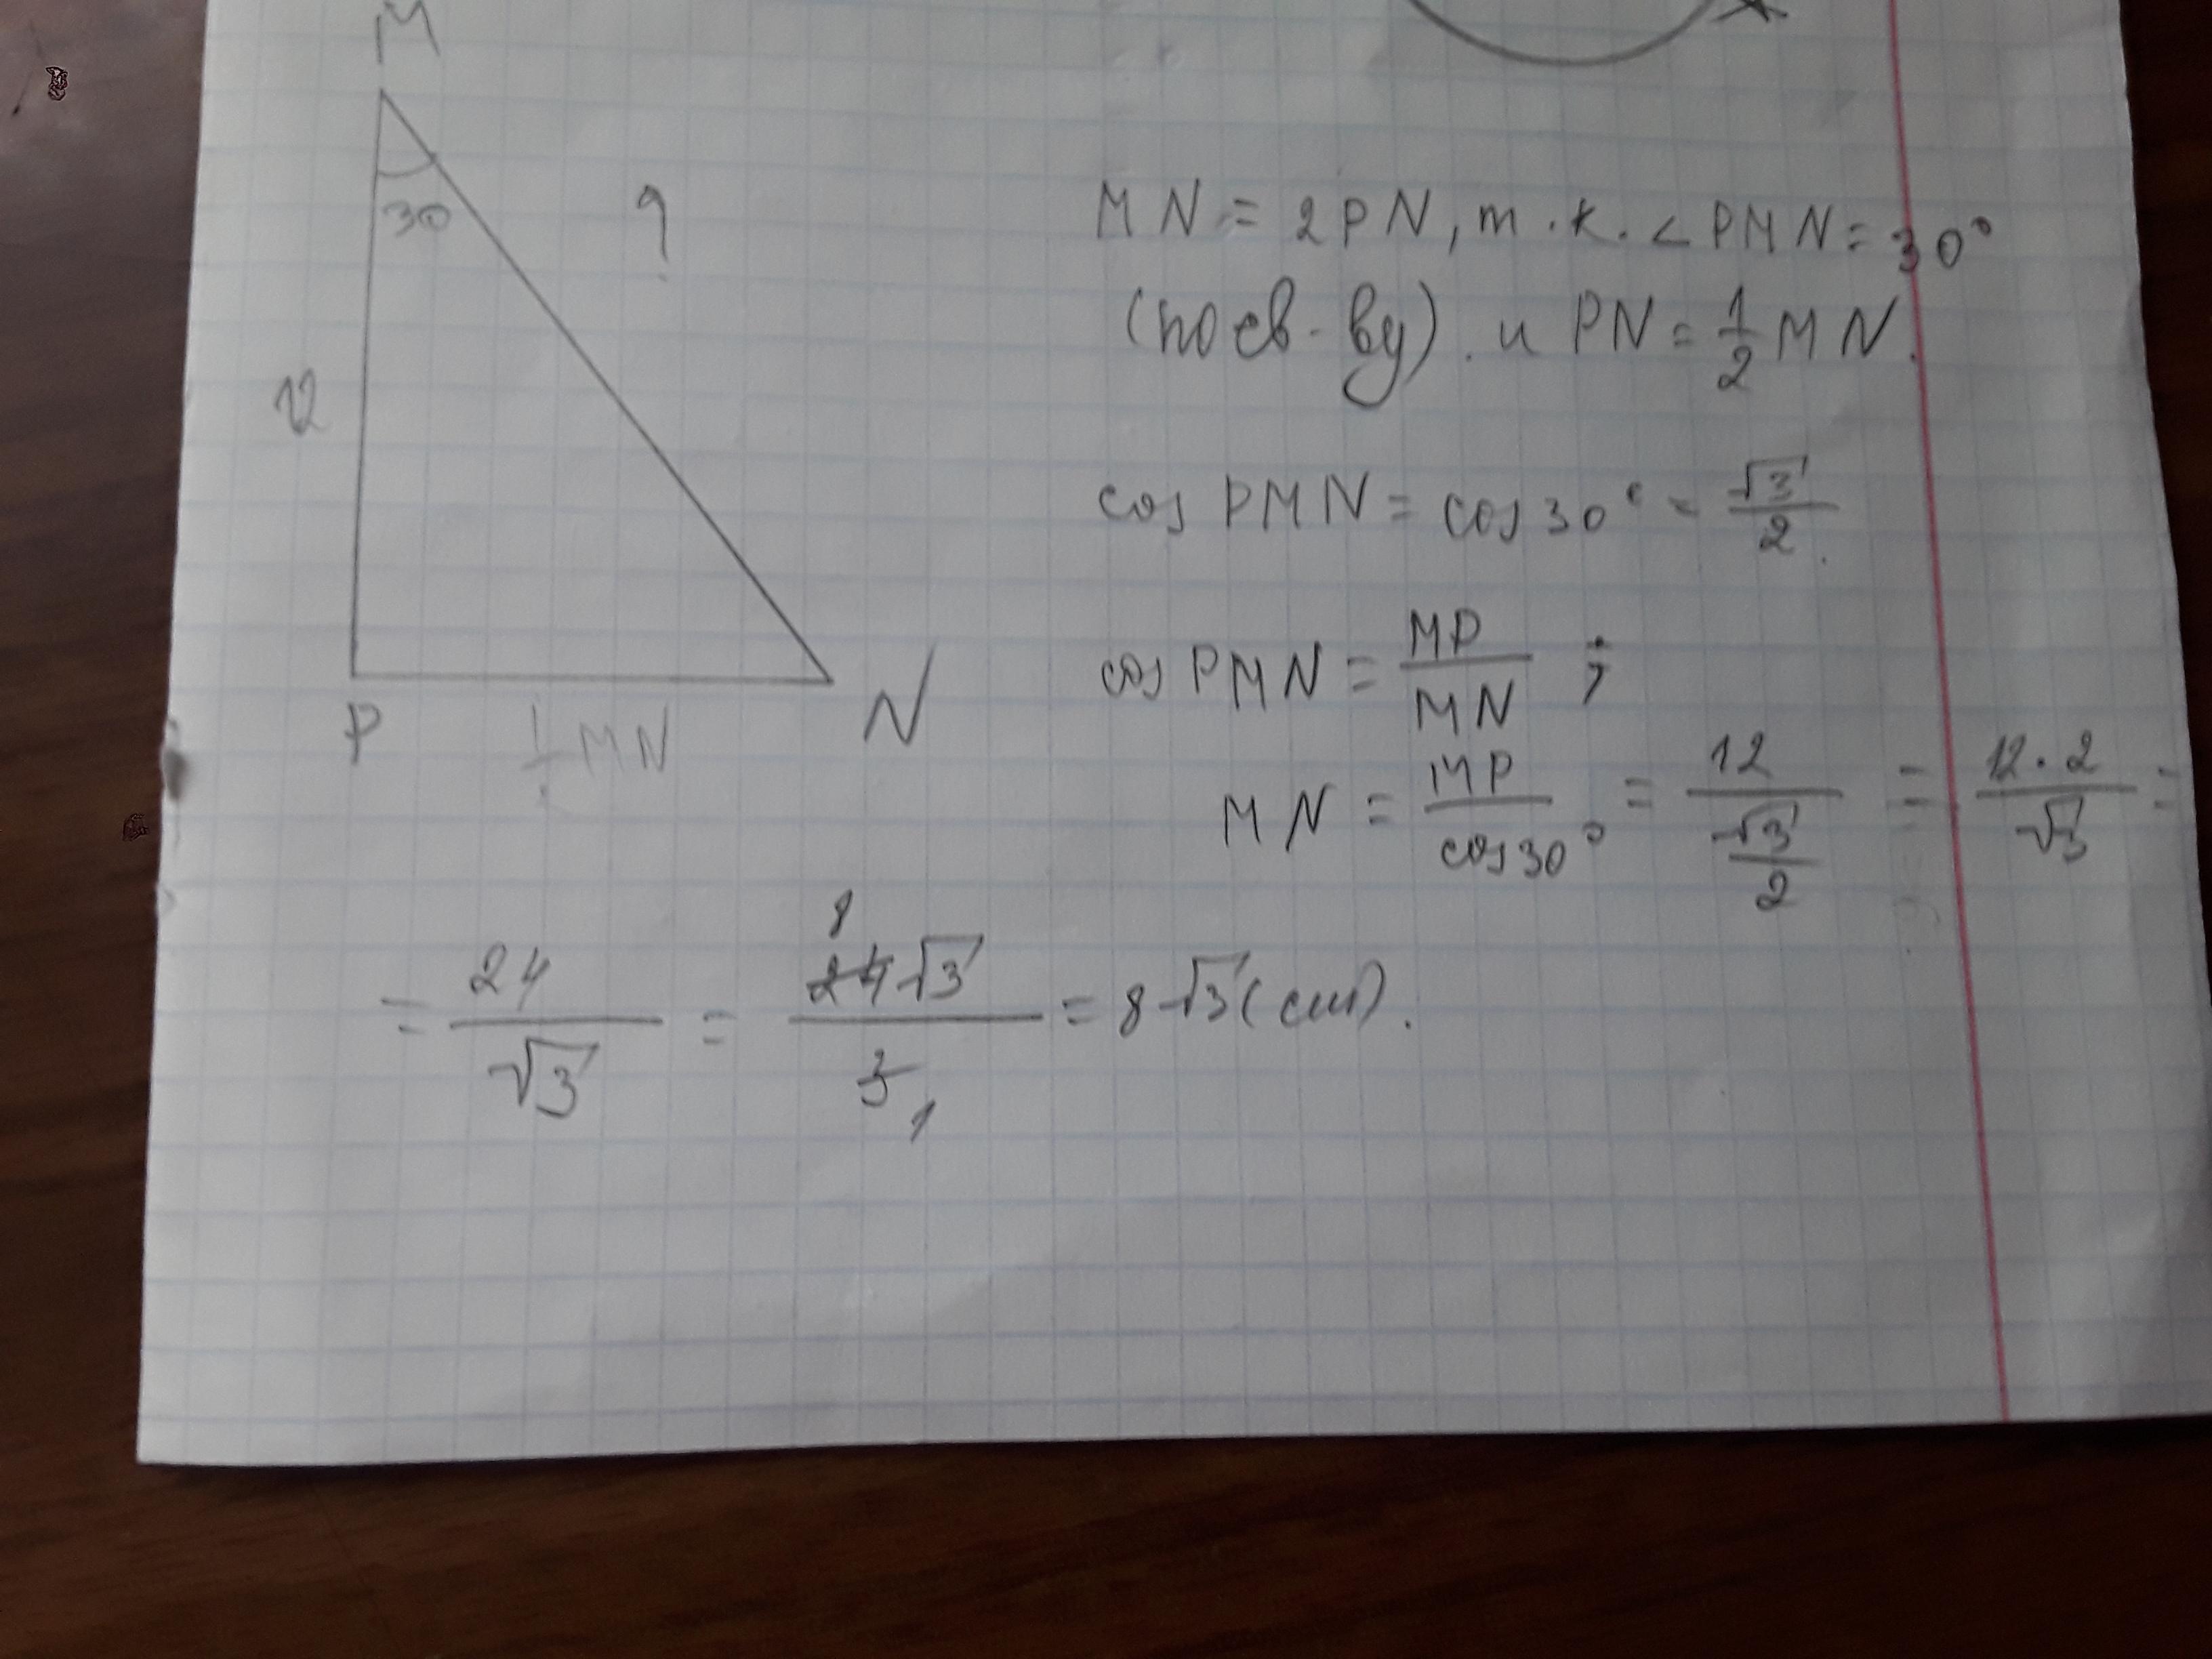 M
30
?
12
P
N
1/ MN
MN = 2PN, т.к. ∠PMN = 30°
(по св-ву). и PN = 1/2 MN.
cos PMN = cos 30° = √3/2.
cos PMN = MP/MN ;
MN = MP/cos30° = 12/(√3/2) = 12·2/√3 =
= 24/√3 = 24√3/3 = 8√3 (см).
8
1